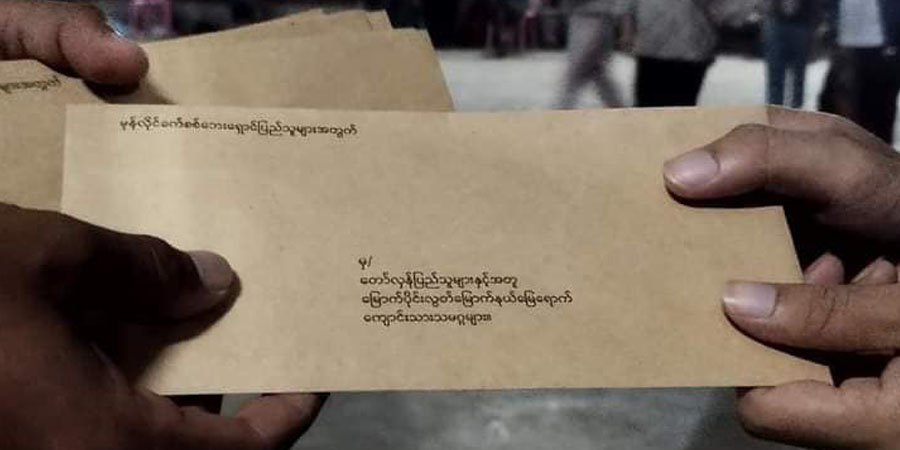 များအတွက်
မုန်လိုင်ခက်စစ်ဘေးရှောင်ပြည်သူများအတွက်
မှ/
တော်လှန်ပြည်သူများနှင့်အတူ
မြောက်ပိုင်းလွတ်မြောက်နယ်မြေရောက်
ကျောင်းသားသမဂ္ဂများ။